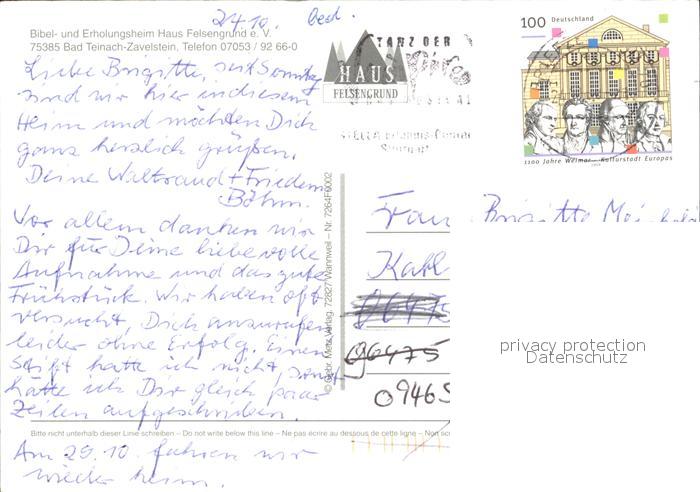 24.10.
Bibel- und Erholungsheim Haus Felsengrund e. V.
75385 Bad Teinach-Zavelstein, Telefon 07053 / 92 66-0
Liebe Brigitte, seit Sonntag
sind wir hier in diesem
Heim und möchten Dich
ganz herzlich grüßen.
Deine Waltraud + Friedem
Böhm.
Vor allem danken wir
Dir für Deine liebevolle
Aufnahme und das gute
Frühstück. Wir haben oft
versucht, Dich anzurufen
leider ohne Erfolg. Einen
Stift hatte ich nicht, sonst
hätte ich Dir gleich paar
Zeilen aufgeschrieben.
Bitte nicht unterhalb dieser Linie schreiben – Do not write below this line – Ne pas écrire au dessous de cette ligne – Non sc
Am 29.10. fahren wir
wieder heim.
HAUS
FELSENGRUND
TANZ DER
© Gebr. Metz Verlag, 72827 Wannweil – Nr. 7264F0002
100 Deutschland
1100 Jahre Weimar – Kulturstadt Europas
Frau Brigitte
Karl
06475
06475
0946
privacy protection
Datenschutz